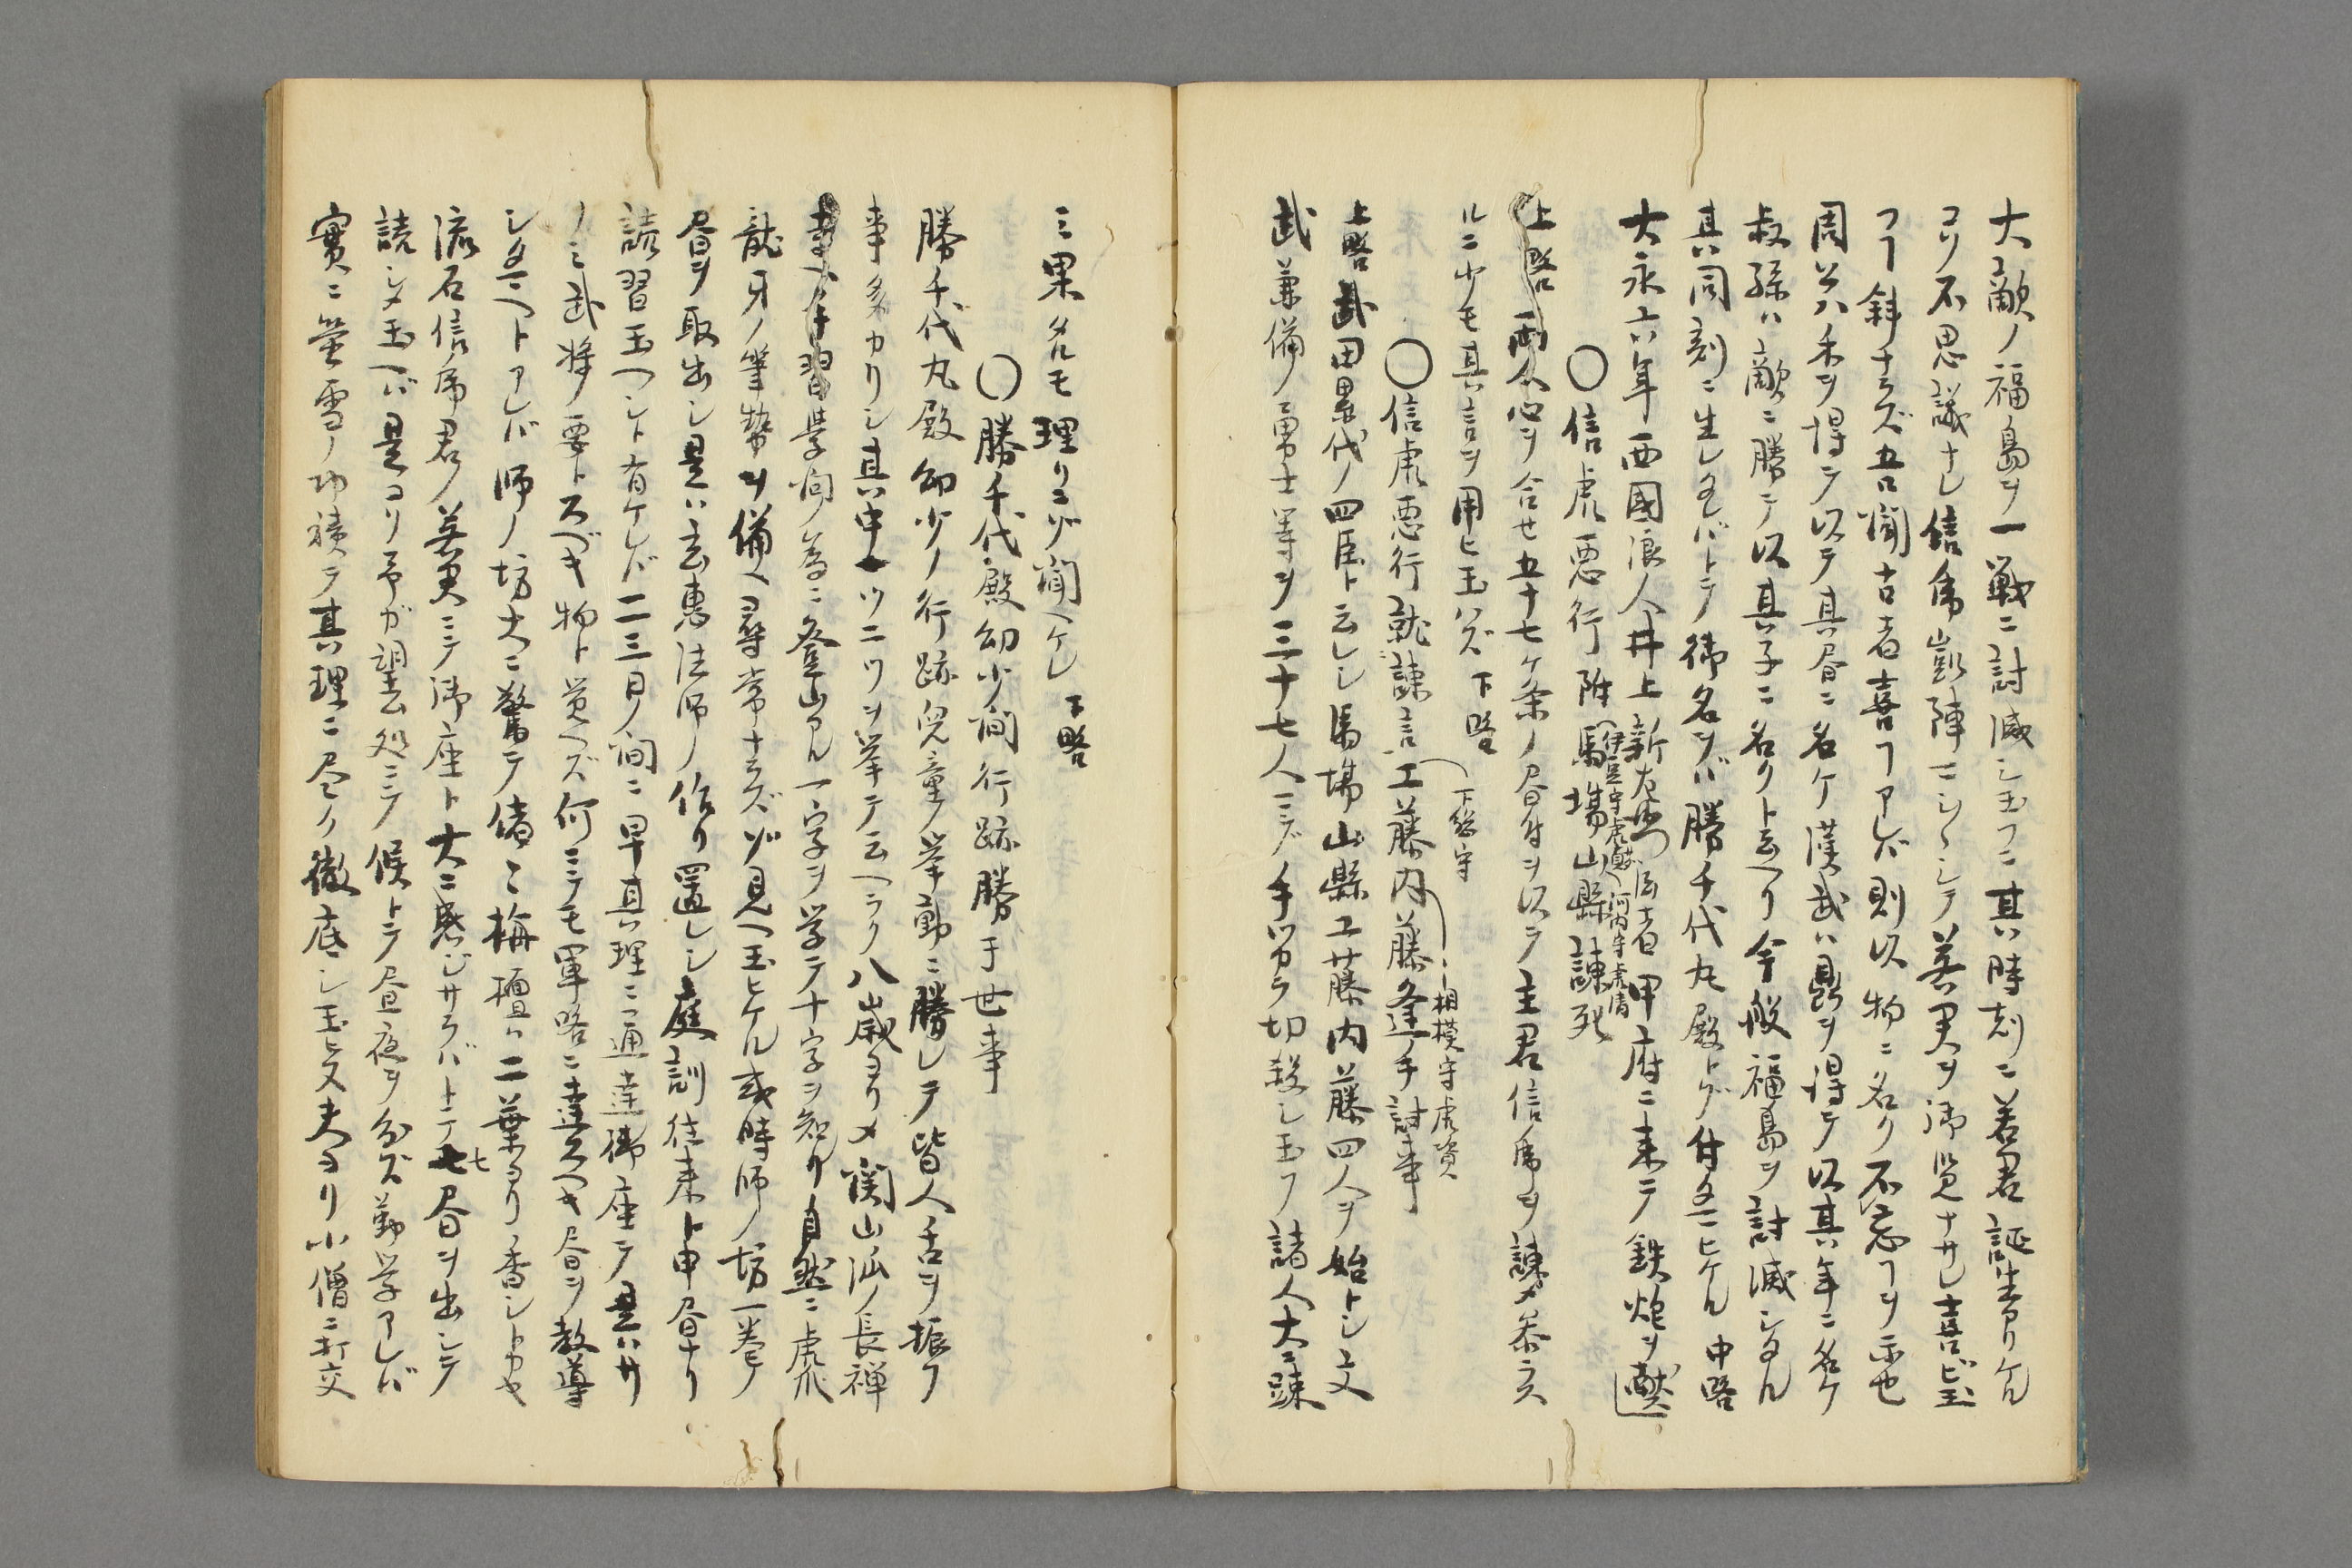 大敵ノ福島ヲ一戦ニ討滅シ玉フニ其時刻ニ若君誕生アリケル
コソ不思議ナレ信虎凱陣マシ〱シテ若君ヲ御覧ナサレ喜ビ玉
フコト斜ナラズ吾聞古者喜コトアレバ則以物ニ名ク不忘コトヲ示也
周公ハ禾ヲ得テ以テ其書ニ名ケ漢武ハ鼎ヲ得テ以其年ニ名ケ
叔孫ハ敵ニ勝テ以其子ニ名クト云ヘリ今般福島ヲ討滅シタル
其同刻ニ生レタレバトテ御名ヲバ勝千代丸殿トゾ付タマヒケル 中略
大永六年西國浪人井上新左衛門ト云者甲府ニ来テ鉄炮ヲ献
〇信虎悪行附馬場 伊豆守虎貞 山縣 河内守虎清 諫死
上略 両人心ヲ合セ五十七ケ条ノ書付ヲ以テ主君信虎ヲ諫メ奉ラル
ルニ少モ其言ヲ用ヒ玉ハズ 下略
〇信虎悪行就諫言工藤 下総守 内藤 相模守虎資 逢手討事
上略 武田累代ノ四臣ト云レシ馬場山縣工藤内藤四人ヲ始トシ文
武兼備ノ勇士等ヲ三十七人ミヅ手ヅカラ切殺シ玉フ諸人大ニ疎
ミ果タルモ理リニゾ聞ヘケレ 下略
〇勝千代殿幼少間行跡勝于世事
勝千代丸殿幼少ノ行跡児童ノ挙動ニ勝レテ皆人舌ヲ振フ
事多カリシ其中一ツニツヲ挙テ云ヘラク八歳ヨリメ関山派ノ長禅
寺ヘ手習学問ノ為ニ登山アル一字ヲ学テ十字ヲ知リ自然ニ虎爪
龍牙ノ筆勢ヲ備ヘ尋常ナラズゾ見ヘ玉ヒケル或時師ノ坊一巻ノ
書ヲ取出シ是ハ玄恵法師ノ作リ置レシ庭訓往来ト申書ナリ
読習玉ヘント有ケレバ二三日ノ間ニ早其理ニ通達御座テ是ハサ
ノミ武将ノ要トスベキ物ト覚ヘズ何ニテモ軍略ニ達スヘキ書ヲ教導
シタマヘトアレバ師ノ坊大ニ驚テ偖々栴檀ハ二葉ヨリ香シトカヤ
流石信虎君ノ若君ニテ御座ト大ニ感ジサラバトテ七書ヲ出シテ
読シメ玉ヘバ是コソ予ガ望ム処ニテ候トテ昼夜ヲ分ズ勤学アレバ
實ニ螢雪ノ功積テ其理ニ尽ク徹底シ玉ヒヌ夫ヨリ小僧ニ打交